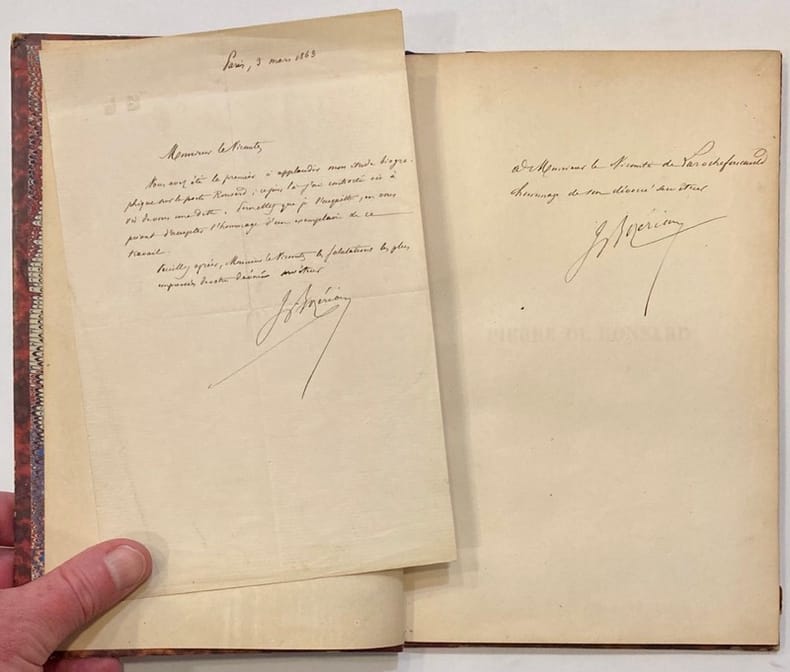 Paris, 3 mars 1863
Monsieur le Vicomte,
Vous avez été le premier à applaudir mon étude biogra-
phique sur le poète Ronsard ; j'ai contracté vis à
vis de vous une dette. Permettez que je l'acquitte, en vous
priant d'accepter l'hommage d'un exemplaire de ce
travail.
Veuillez agréer, Monsieur le Vicomte, les salutations les plus
empressées de votre dévoué serviteur
J Bozérian
à Monsieur le Vicomte de Larochefoucauld
hommage de son dévoué serviteur
J Bozérian
PIERRE DE RONSARD